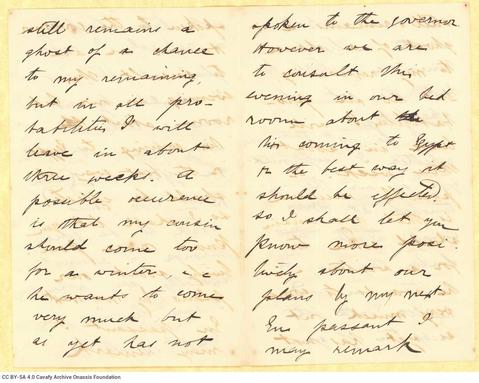 still remains a
ghost of a chance
to my remaining,
but in all pro-
babilities I will
leave in about
three weeks. A
possible occurence
is that my cousin
should come too
for a winter, i.e
he wants to come
very much but
as yet has not
spoken to the governor
However we are
to consult this
evening in our bed
room about the
his coming to Egypt
& the best way it
should be effected,
so I shall let you
know more posi-
tively about our
plans by my next
En passant I
may remark
CC BY-SA 4.0 Cavafy Archive Onassis Foundation